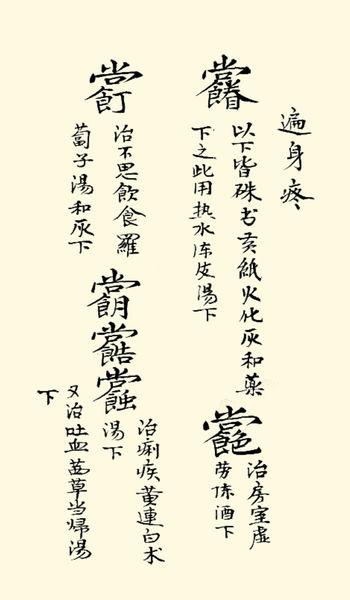 遍身疼
以下皆硃书黄紙火化灰和薬
下之此用热水陈皮湯下
治房室虚
劳陈酒下
治不思飲食羅
蔔子湯和灰下
治痢疾黄連白术
湯下
又治吐血茜草当帰湯
下